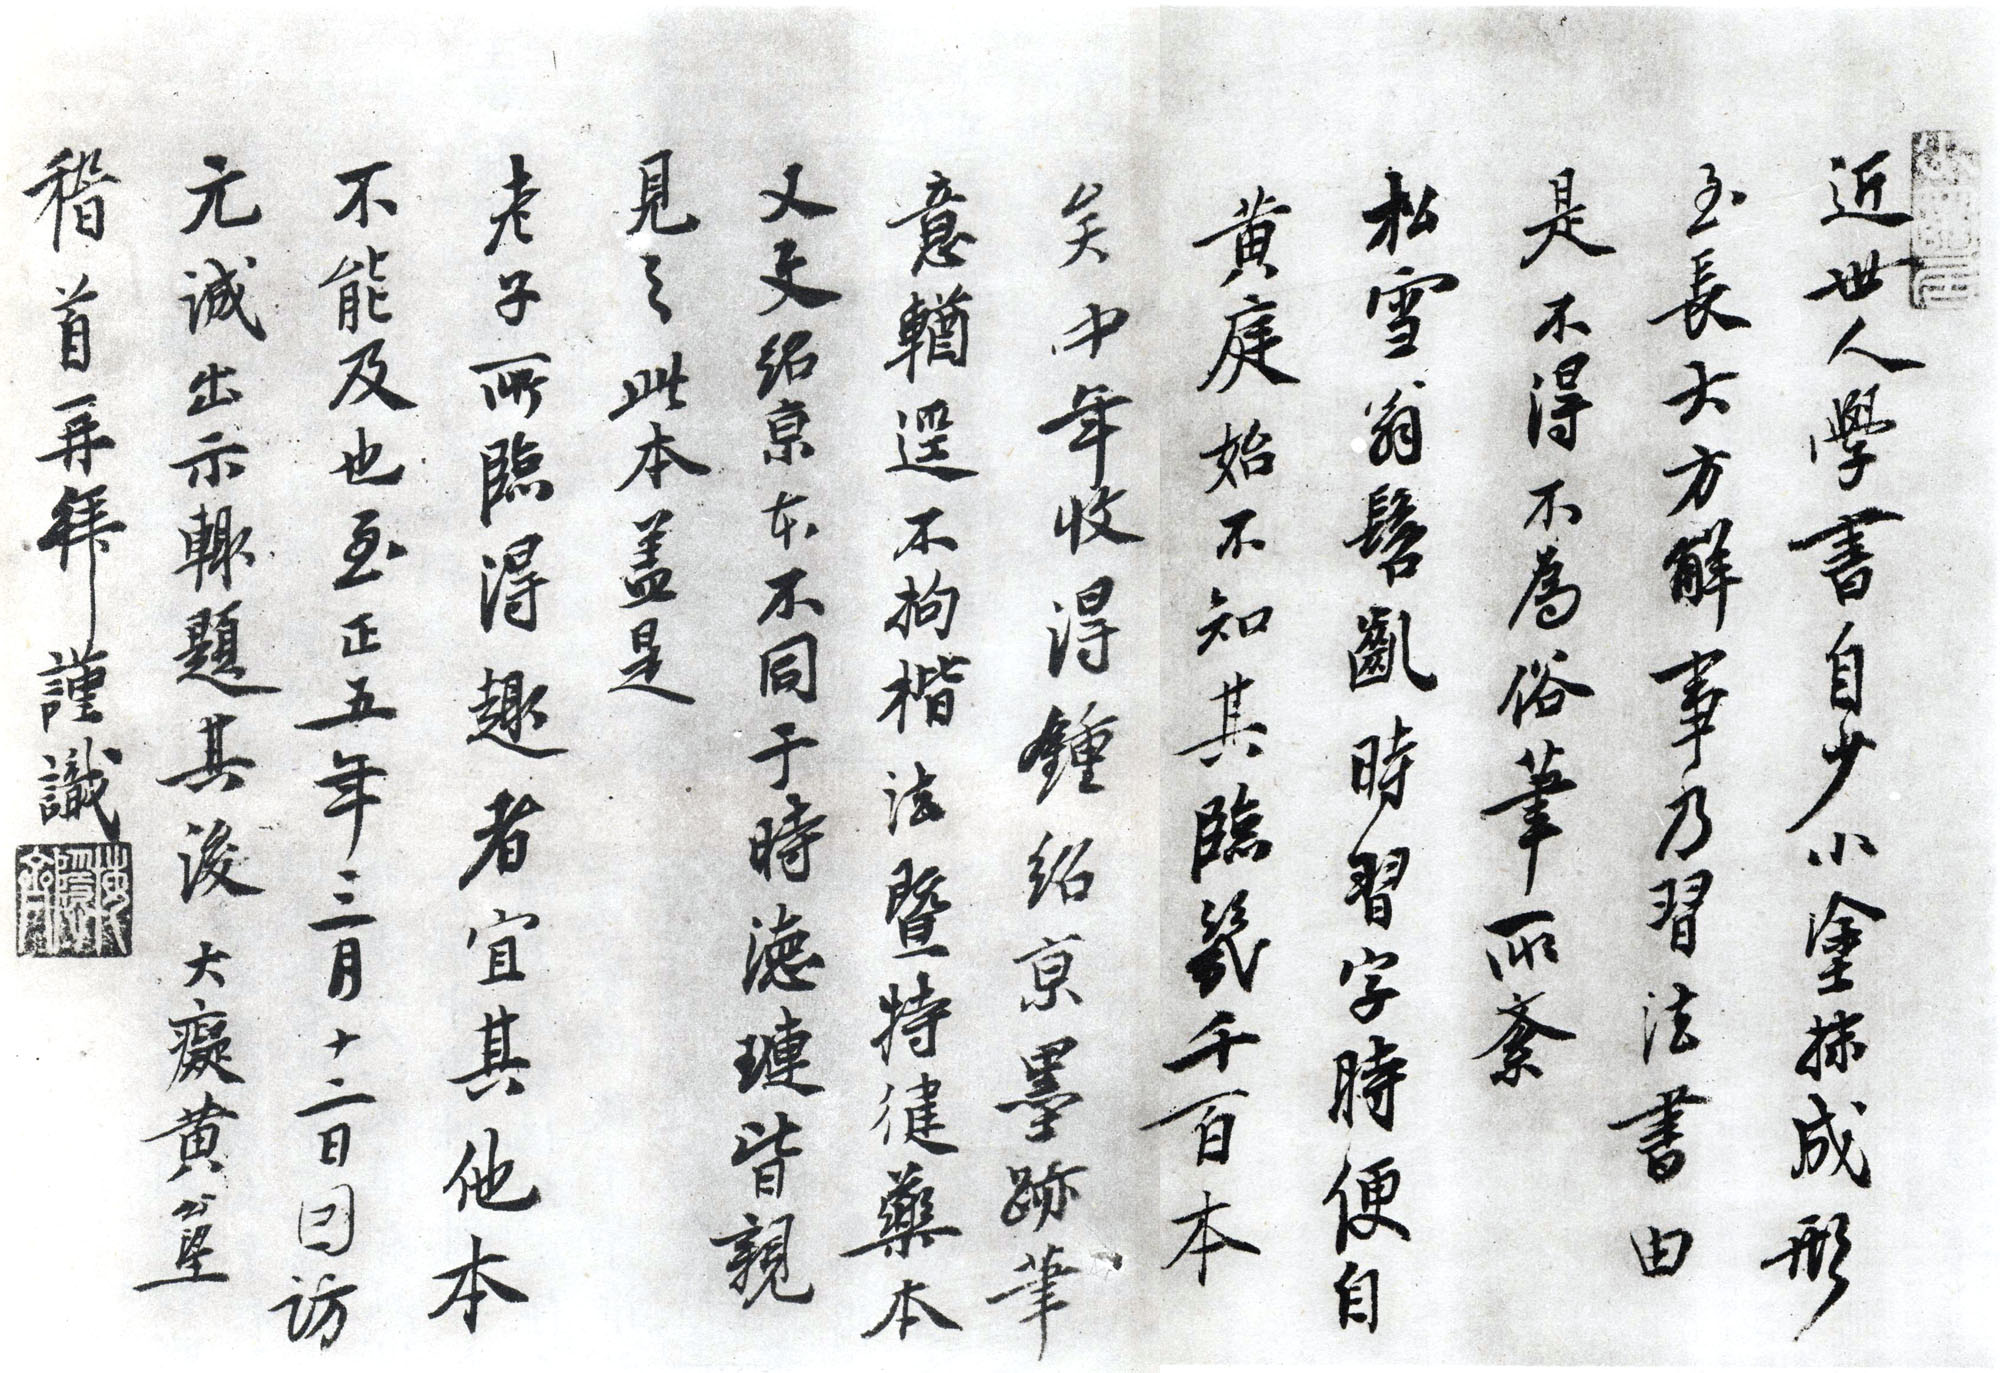 近世人學書自少小塗抹成形
至長大方解事乃習法書由
是不得不為俗筆所紊
松雪翁髫齓時習字時便自
黃庭始不知其臨幾千百本
矣中年收得鍾紹京墨跡筆
意輶逕不拘楷法暨特健藥本
又天紹京本不同于時德璉皆親
見之此本盖是
老子所臨得趣者宜其他本
不能及也至正五年三月十二日因訪
元誠出示輙題其後大癡黃公望
稽首再拜謹識